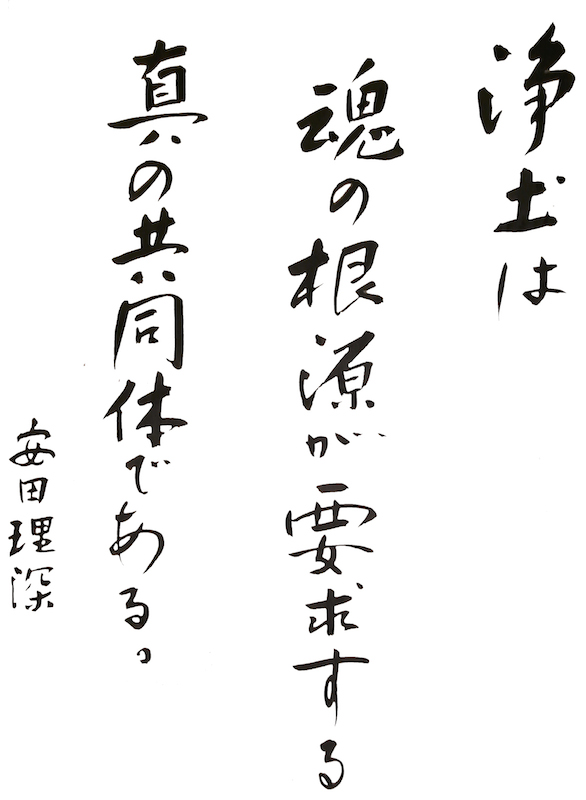 浄土は
魂の根源が要求する
真の共同体である。
安田理深